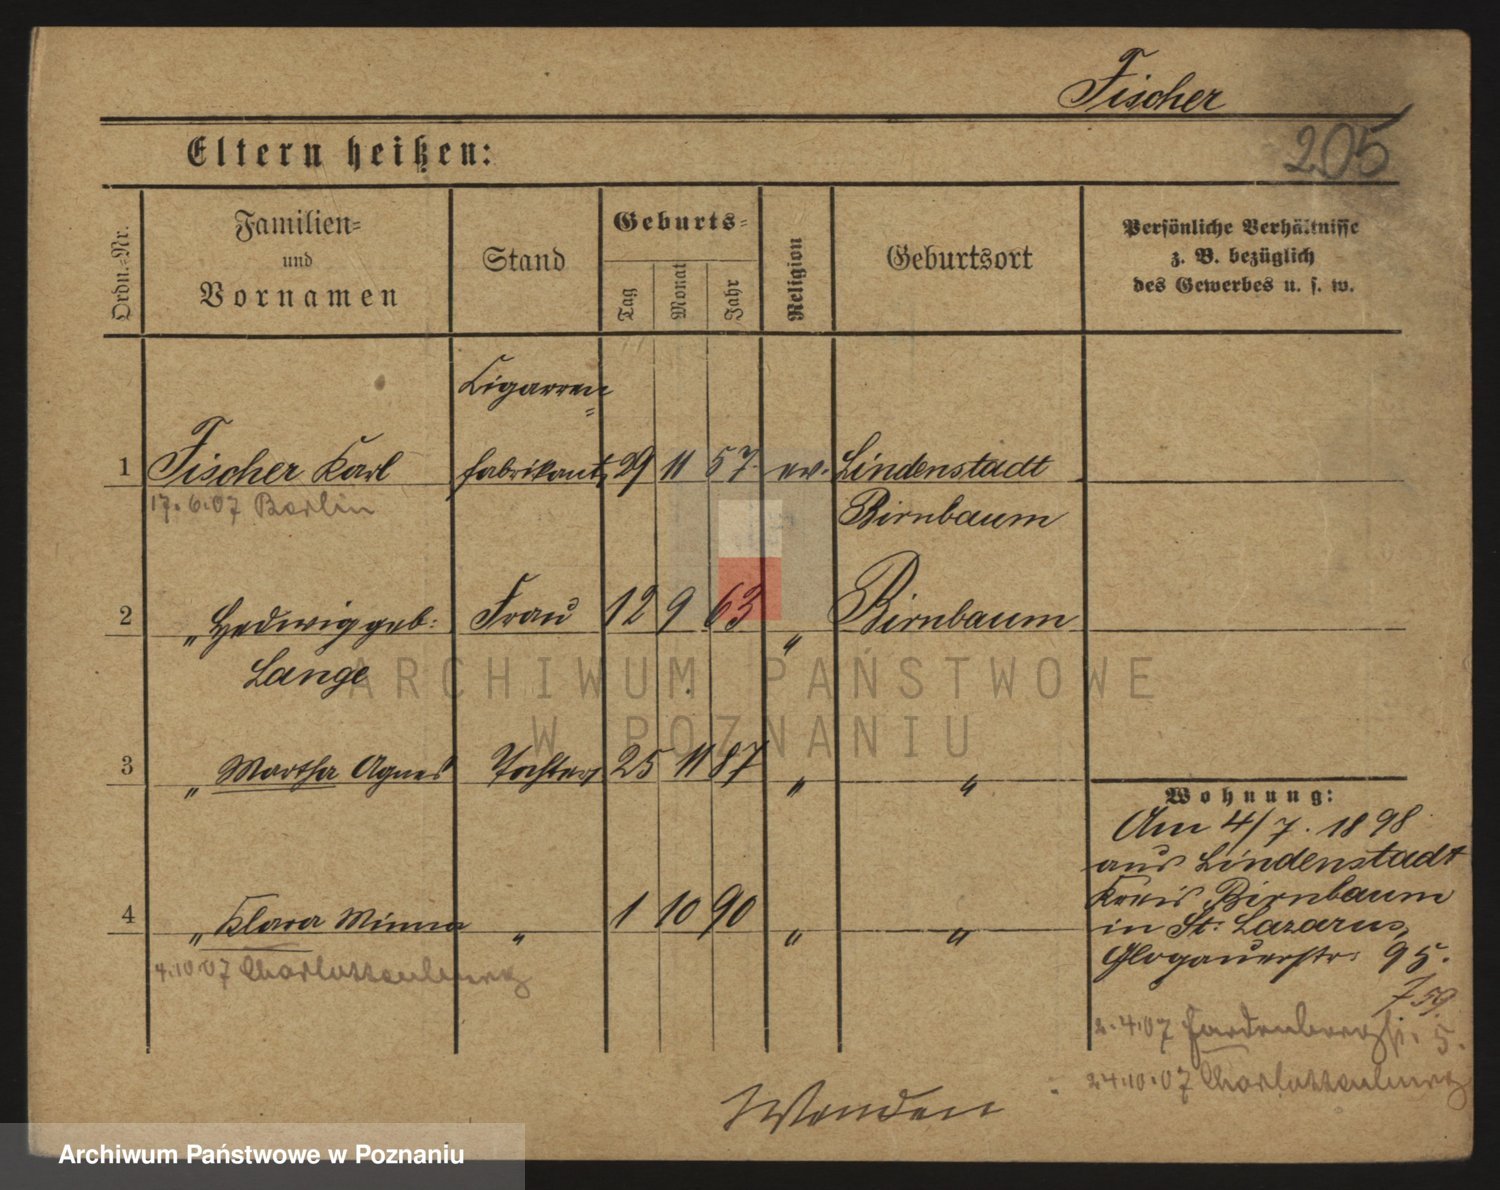 Fischer
205
Eltern heißen:
Ordn.-Nr.
Familien-
und
Vornamen
Stand
Geburts-
Tag
Monat
Jahr
Religion
Geburtsort
Persönliche Verhältnisse
z. B. bezüglich
des Gewerbes u. s. w.
Cigarren=
1 Fischer Karl fabrikant 29 11 57 ev. Lindenstadt
17.6.07 Berlin
Birnbaum
2 „ Hedwig geb: Frau 12 9 63 „ Birnbaum
Lange
3 „ Martha Agnes Tochter 25 11 87 „ „
4 „ Klara Minna „ 1 10 90 „ „
4.10.07 Charlottenburg
Wohnung:
Am 4/7. 1898
aus Lindenstadt
Kreis Birnbaum
in St: Lazarus,
Glogauerstr: 95.
759
2.4.07 Hardenbergstr. 5.
24.10.07 Charlottenburg
Wenden
ARCHIWUM PAŃSTWOWE
W POZNANIU
Archiwum Państwowe w Poznaniu